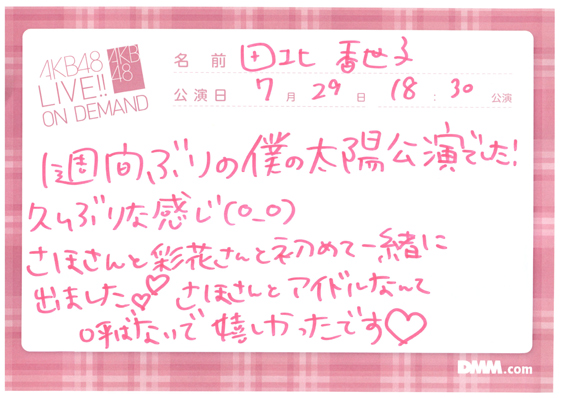 AKB48
LIVE!!
ON DEMAND
AKB
48
名前 田北 香世子
公演日 7月29日 18:30公演
1週間ぶりの僕の太陽公演でした!
久しぶりな感じ(o_o)
さほさんと彩花さんと初めて一緒に
出ました♡♡ さほさんとアイドルなんて
呼ばないで嬉しかったです♡
DMM.com